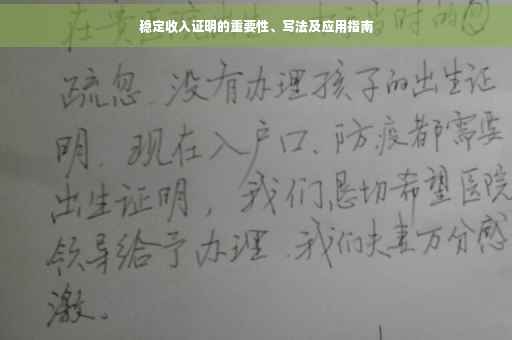 稳定收入证明的重要性、写法及应用指南
在贵医院出生、当时的
疏忽、没有办理孩子的出生证
明、现在入户口、防疫都需要
出生证明，我们恳切希望医院
领导给予办理、我们夫妻万分感
激。